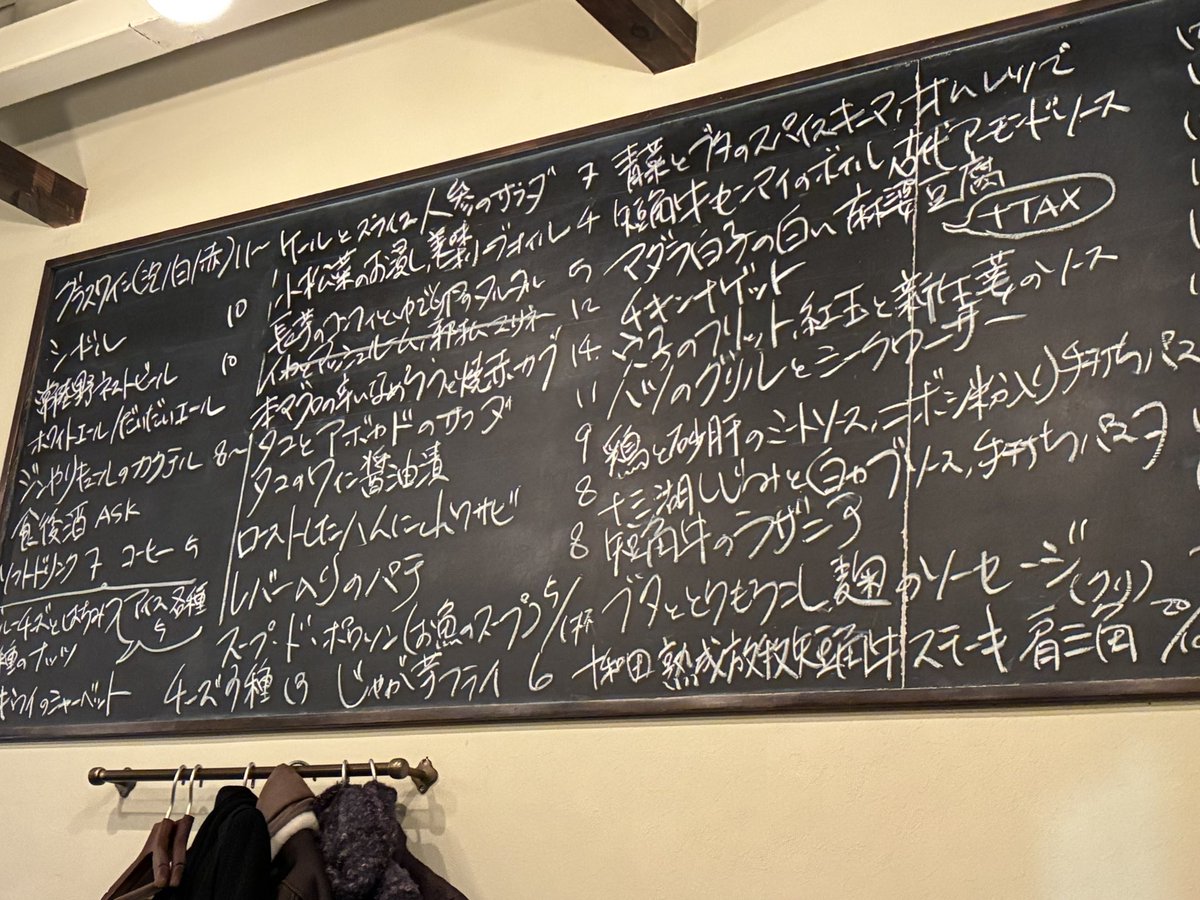 グラスワイン(泡/白/赤) 11〜
シードル 10
常陸野ネストビール 10
ホワイトエール/だいだいエール
ジンやリキュールのカクテル 8〜
食後酒 ASK
ソフトドリンク 7 コーヒー 5
ルーチーズとはちみつ アイス各種 5
種のナッツ
キウイのシャーベット
ケールとスライス人参のサラダ 7
小松菜のお浸し、美味オリーブオイル 4
長芋のコンフィとゆで卵のタルタル 9
いわとマッシュルーム、 マリネ 12
本マグロの辛いなめろうと焼赤カブ 14
タコとアボカドのサラダ 11
タコのワイン醤油漬 9
ローストしたハムにしんわサビ 8
レバー入りのパテ 8
スープ・ド・ポワソン(お魚のスープ) 5/1杯
チーズ9種 13 じゃが芋フライ 6
青菜とブタのスパイスキーマ、甘いレツで
短角牛センマイのボイル 古代アーモンドソース
マダラ白子の白い麻婆豆腐
+TAX
チキンナゲット
白子のフリット、紅玉と新生姜のソース
ハツのグリルとシークワーサー
鶏と砂肝のミートソース、ゴボシ粉入り手打ちパス
十三湖しじみと白カブソース、手打ちパスタ
短角牛のラザニア
ブタととうもろこし麹のソーセージ
十和田 熟成放牧短角牛ステーキ 肩三角(クリ) 20